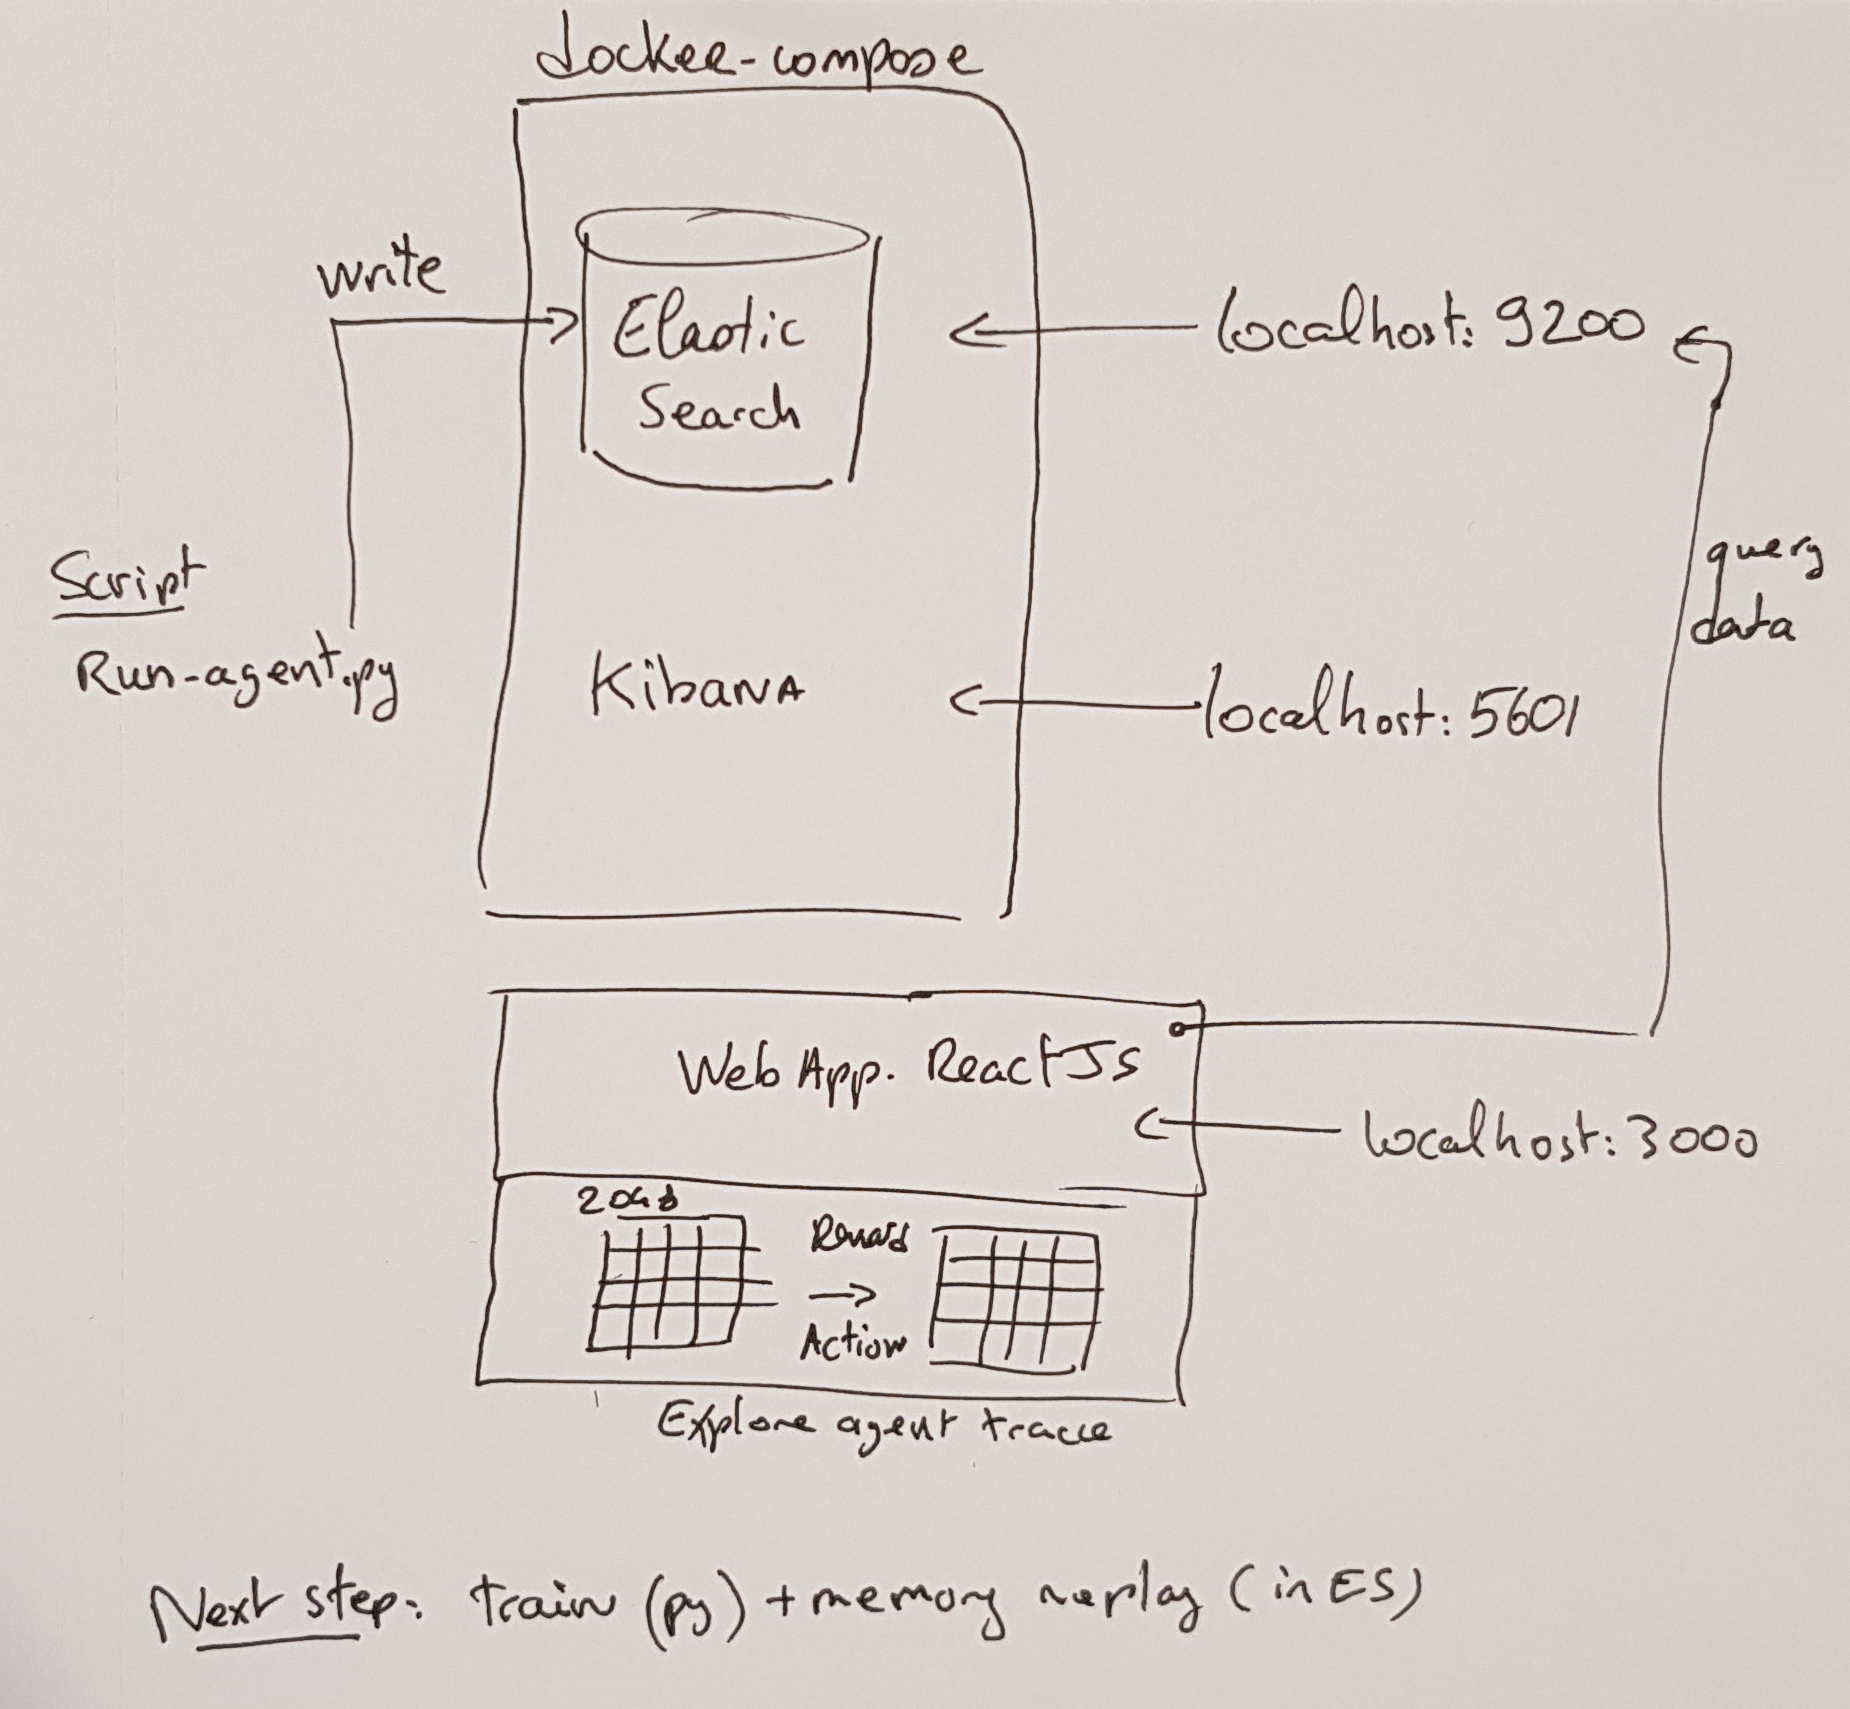 docker-compose
write
Elastic
Search
localhost: 9200
query
data
Script
Run-agent.py
KibanA
localhost: 5601
Web App. ReactJs
localhost: 3000
2048
Reward
Action
Explore agent trace
Next step: train (py) + memory replay (in ES)